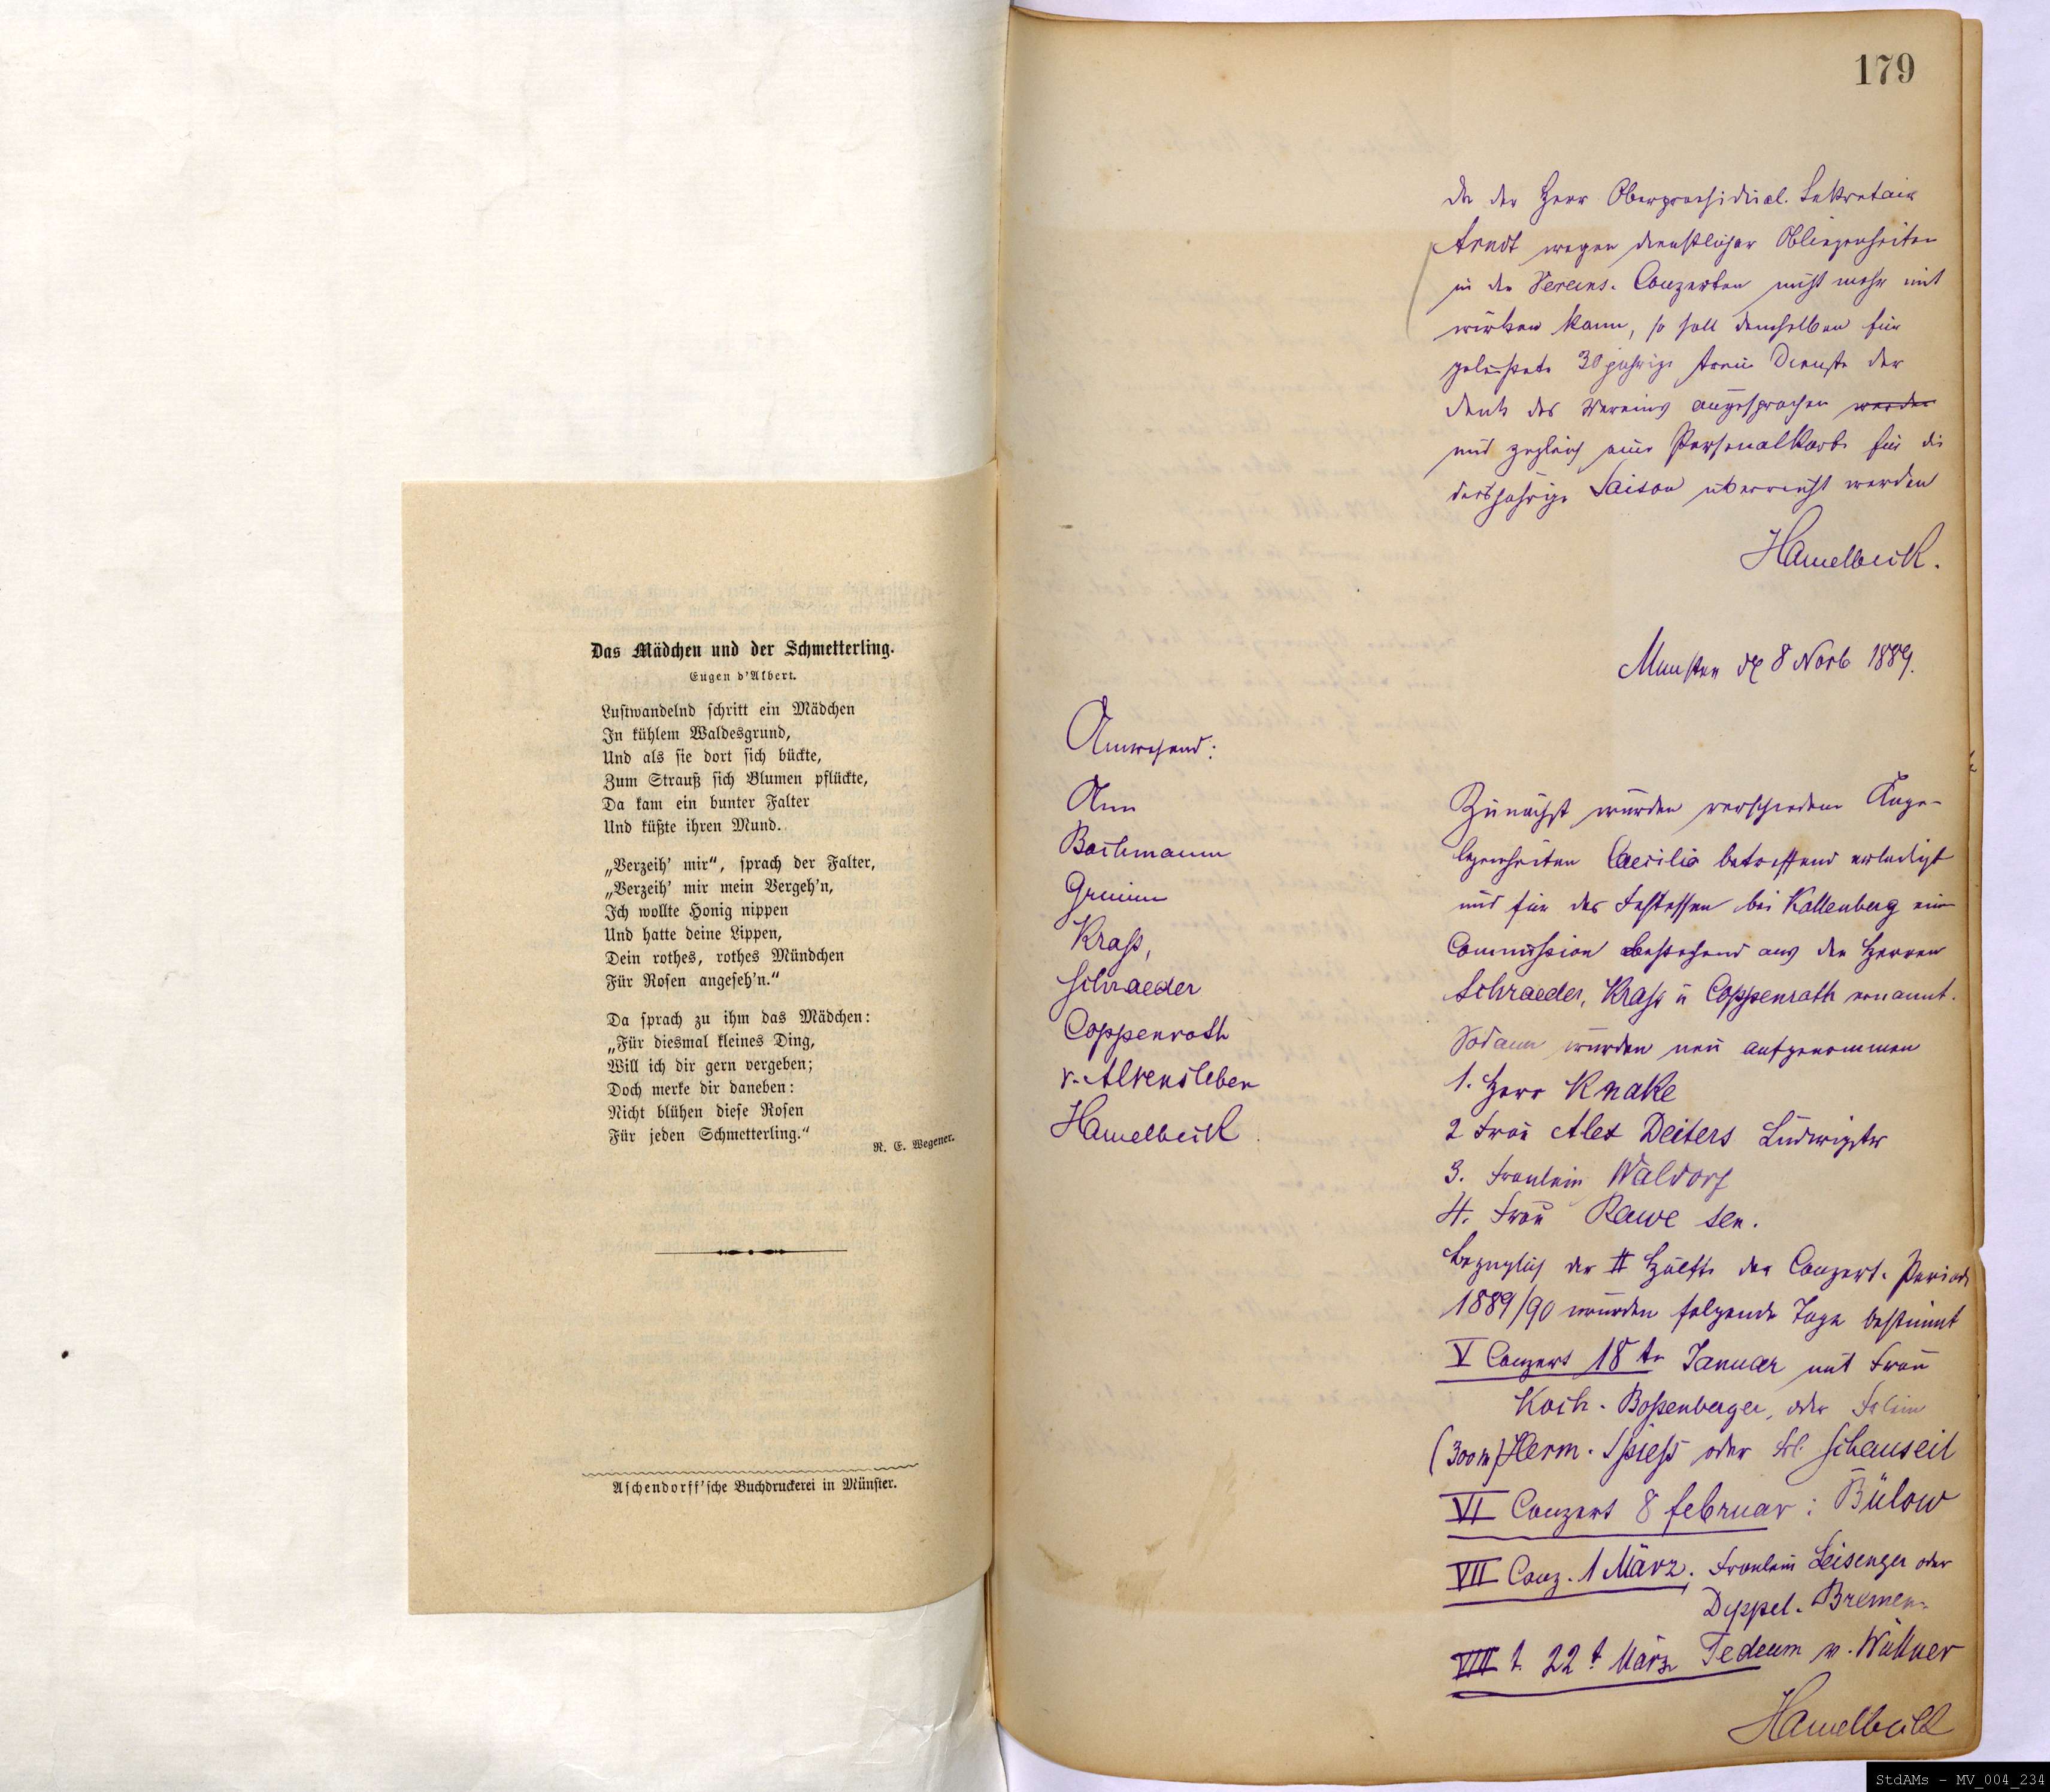 Das Mädchen und der Schmetterling.
Eugen d'Albert.
Lustwandelnd schritt ein Mädchen
In kühlem Waldesgrund,
Und als sie dort sich bückte,
Zum Strauß sich Blumen pflückte,
Da kam ein bunter Falter
Und küßte ihren Mund.
„Verzeih' mir“, sprach der Falter,
„Verzeih' mir mein Vergeh'n,
Ich wollte Honig nippen
Und hatte deine Lippen,
Dein rothes, rothes Mündchen
Für Rosen angeseh'n.“
Da sprach zu ihm das Mädchen:
„Für diesmal kleines Ding,
Will ich dir gern vergeben;
Doch merke dir daneben:
Nicht blühen diese Rosen
Für jeden Schmetterling.“
R. E. Wegener.
Aschendorff'sche Buchdruckerei in Münster.
179
Da der Herr Oberpraesidial. Sekretair
Arndt wegen dienstlicher Obliegenheiten
in den Vereins. Conzerten nicht mehr mit
wirken kann, so soll demselben für
geleistete 30 jährige treue Dienste der
Dank des Vereins ausgesprochen werden
und zugleich eine Personalkarte für die
diesjährige Saison überreicht werden
Hamelbeck.
Munster d 8 Novb 1889.
Anwesend:
Ann
Bachmann
Grimm
Krass,
Schraeder
Coppenrath
v. Alvensleben
Hamelbeck
Zunächst wurden verschiedene Ange-
legenheiten Caecilia betreffend erledigt
und für das Festessen bei Kallenberg eine
Commission bestehend aus den Herren
Schraeder, Krass u Coppenrath ernannt.
Sodann wurden neu aufgenommen
1. Herr Knake
2 Frau Alex Deiters Ludwigstr
3. Fraulein Waldorf
4. Frau Rawe sen.
Bezuglich der II Hälfte der Conzert. Periode
1889/90 wurden folgende Tage bestimmt
V Conzert 18 tn Januar mit Frau
Koch. Bossenberger, oder Frlein
(300 m) Herm. Spiess oder Frl. Schauseil
VI Conzert 8 februar: Bülow
VII Conz. 1 März. Fraulein Leisenger oder
Dyppel. Bremen.
VIII t. 22 t März Tedeum v. Wüllner
Hamelbeck
StdAMs - MV_004_234